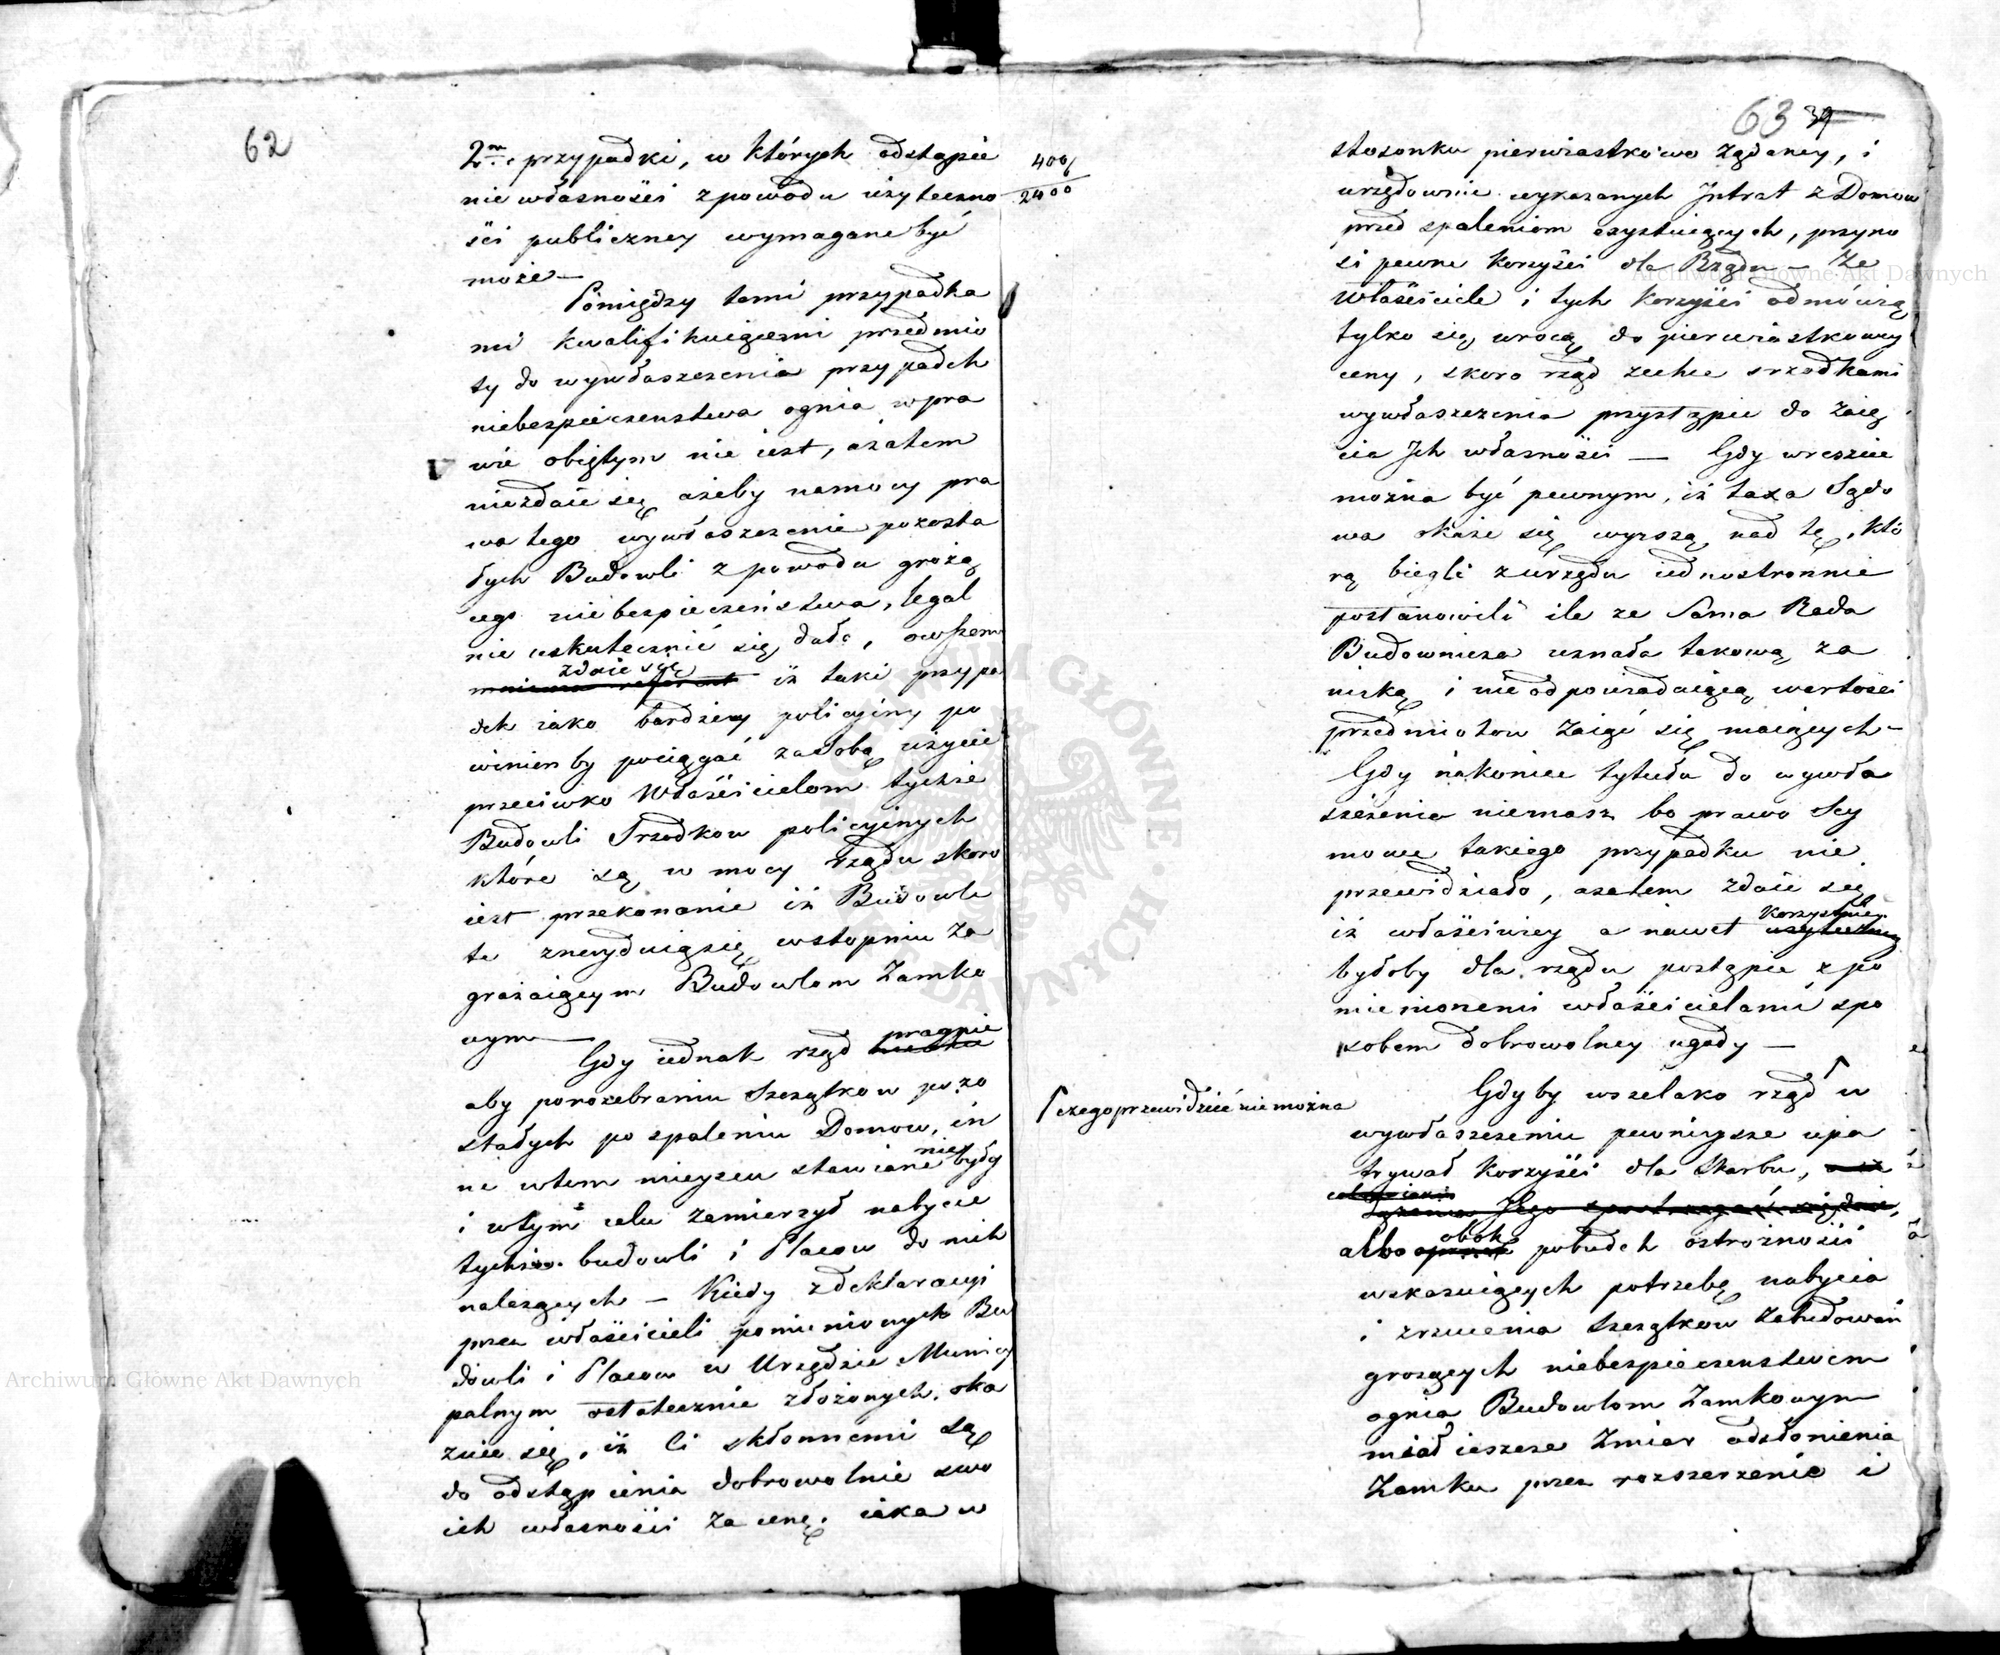 62
2re przypadki, w których odstąpie
nie własności z powodu użyteczno
ści publiczney wymagane być
może —
Pomiędzy temi przypadka
mi kwalifikuiącemi przedmio
ty do wywłaszczenia przypadek
niebezpieczenstwa ognia w pra
wie obiętym nie iest, a zatem
niezdaie się ażeby na mocy pra
wa tego wywłaszczenie pozosta
łych Budowli z powodu grożą
cego niebezpieczeństwa, legal
nie uskutecznić się dało, owszem
zdaie się
iż taki przypa
dek iako bardziey policyiny po
winien by pociągać za sobą użycie
przeciwko Właścicielom tychże
Budowli Srzodkow policyinych
które są w mocy rządu skoro
iest przekonanie iż Budowle
te znayduią się w stopniu za
grażaiącym Budowlom Zamko
wym —
Gdy iednak rząd pragnie
aby po rozebraniu Szczątkow pozo
stałych po spaleniu Domow, in
ne w tem mieyscu stawiane nie były
i w tym celu zamierzył nabycie
tychże budowli i Placow do nich
należących — Kiedy z deklaracyi
przez właścicieli pomienionych Bu
dowli i Placow w Urzędzie Municy
palnym ostatecznie złożonych, oka
zuie się, iż Ci skłonnemi są
do odstąpienia dobrowolnie swo
ich własności za cenę, iaka w
400
2400
63 39
stosonku pierwiastkowo żądaney, i
urzędownie wykazanych Intrat z Domow
przed spaleniem exystuiących, przyno
si pewne korzyści dla Rządu — Że
Właściciele i tych korzyści odmówią
tylko się wrocą do pierwiastkowey
ceny, skoro rząd zechce srzodkami
wywłaszczenia przystąpić do zaię
cia Ich własności — Gdy wreszcie
można być pewnym, iż taxa Sądo
wa okaże się wyższą nad tę, któ
rą biegli z urzędu iednostronnie
postanowili ile ze Sama Rada
Budownicza uznała takową za
niską i nie odpowiadaiącą wartości
przedmiotow zaiąć się maiących —
Gdy nakoniec tytułu do wywła
szczenia niemasz bo prawo Sey
mowe takiego przypadku nie
przewidziało, azatem zdaie się
iż właściwiey a nawet korzystniey
byłoby dla rządu postąpić z po
mienionemi właścicielami spo
sobem dobrowolney ugody —
Gdyby wszelako rząd ꓩ w
ꓩ czego przewidzieć nie można
wywłaszczeniu pewnieysze upa
trywał korzyści dla Skarbu,
albo obok pobudek ostrożności
wskazuiących potrzebę nabycia
i zrzucenia Szczątkow zabudowań
grożących niebezpieczenstwem
ognia Budowlom Zamkowym
miał ieszcze Zmiar odsłonienia
Zamku przez rozszerzenie i
Archiwum Główne Akt Dawnych
Archiwum Główne Akt Dawnych
ARCHIWUM GŁÓWNE AKT DAWNYCH